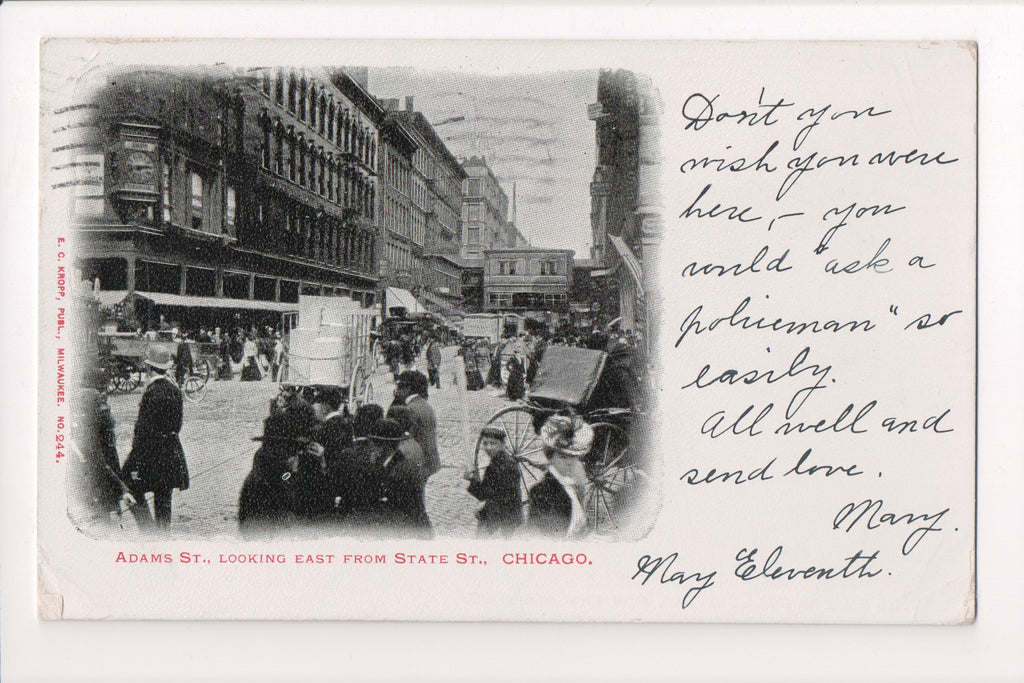 E. C. KROPP, PUBL., MILWAUKEE. NO. 244.
ADAMS ST., LOOKING EAST FROM STATE ST., CHICAGO.
Don't you
wish you were
here, – you
would "ask a
policeman" so
easily.
All well and
send love.
Mary.
May Eleventh.